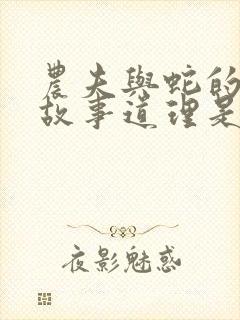 農夫與蛇的
故事道理是
夜影魅惑